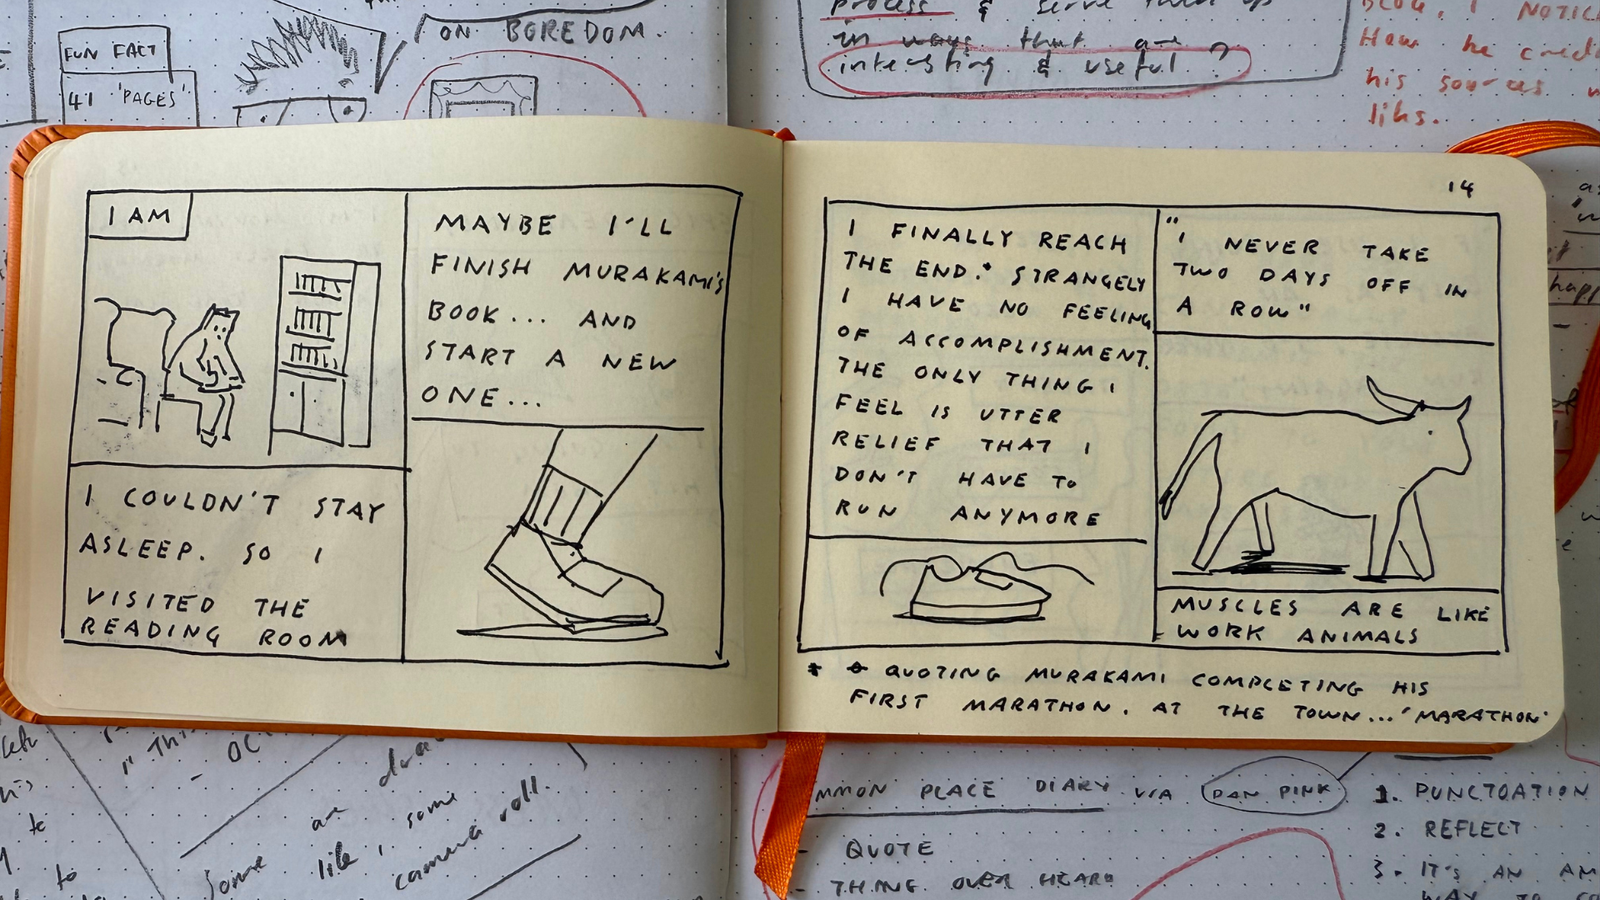 ON BOREDOM.
FUN FACT
41 'PAGES'
process & serve them up
in ways that are
interesting & useful
BLOG. I NOTIC
How he credi
his sources w
links.
I AM
I COULDN'T STAY
ASLEEP. SO I
VISITED THE
READING ROOM
MAYBE I'LL
FINISH MURAKAMI'S
BOOK... AND
START A NEW
ONE...
14
I FINALLY REACH
THE END.* STRANGELY
I HAVE NO FEELING
OF ACCOMPLISHMENT.
THE ONLY THING I
FEEL IS UTTER
RELIEF THAT I
DON'T HAVE TO
RUN ANYMORE
"I NEVER TAKE
TWO DAYS OFF IN
A ROW"
MUSCLES ARE LIKE
WORK ANIMALS
* QUOTING MURAKAMI COMPLETING HIS
FIRST MARATHON. AT THE TOWN... 'MARATHON'
"THI
- OC
are
like, some
Some camera roll.
MMON PLACE DIARY VIA DAN PINK
- QUOTE
- THING OVER HEARD
1. PUNCTOATION
2. REFLECT
3. IT'S AN AM
WAY TO CO